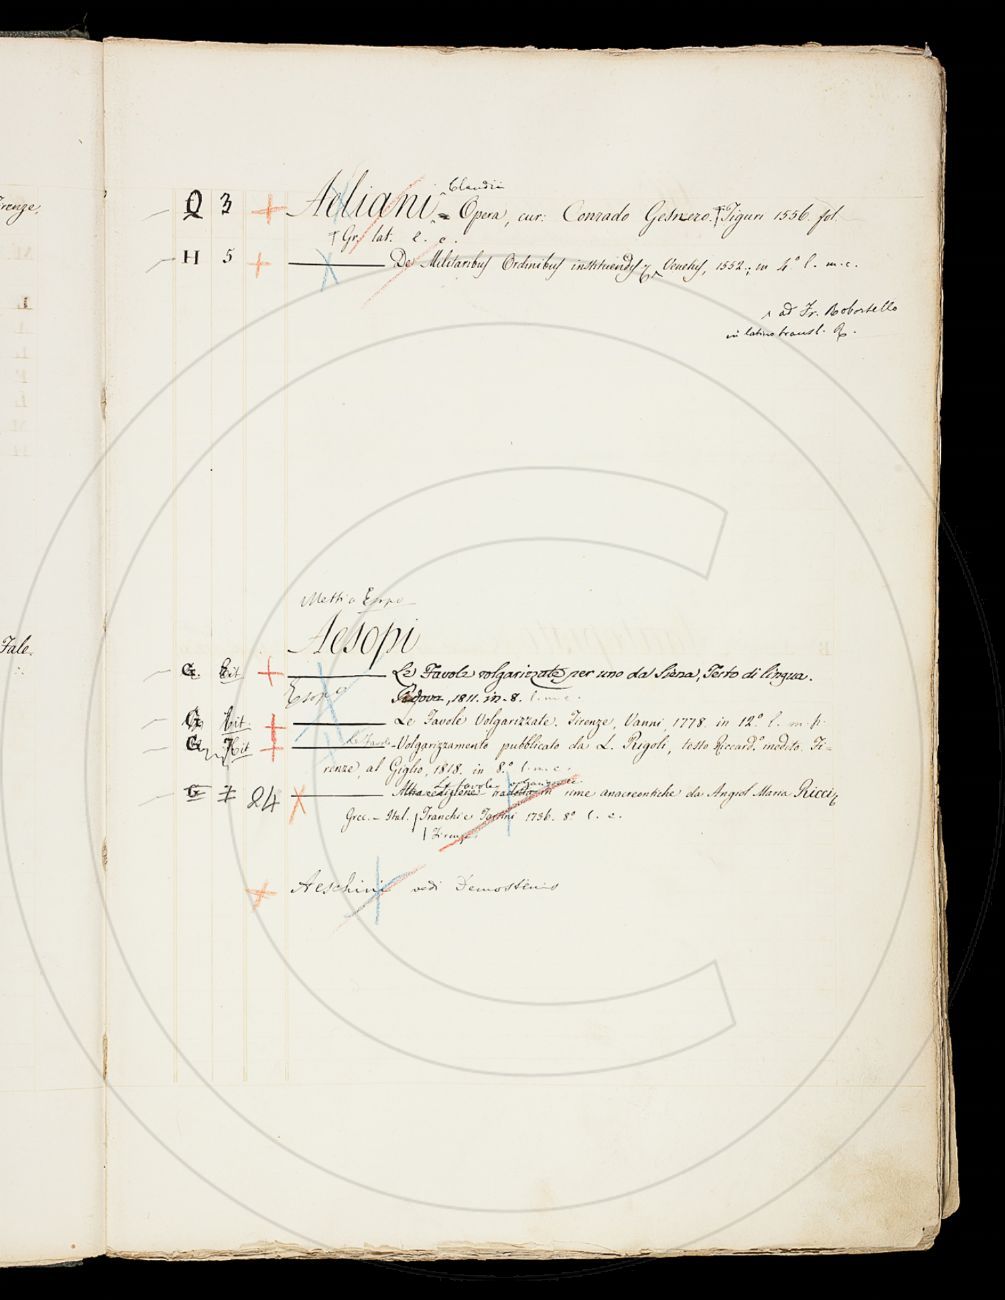 Firenze.
Claudii
Q 3 Aeliani = Opera, cur: Conrado Gesnero. Tiguri 1556. fol.
Gr. lat. l. c.
H 5 De Militaribus Ordinibus instituendis Venetiis, 1552., in 4.º l. m. c.
ad Fr. Robortello
in latino transl.
Esopo
Aesopi
Tale.
G. Cit Le Favole volgarizzate per uno da Siena, Testo di lingua.
Esopo Padova, 1811. in-8. l. m. c.
G Cit. Le Favole Volgarizzate. Firenze, Vanni, 1778. in 12.º l. m. p.
G. 7 Cit Le Favole Volgarizzamento pubblicato da L. Rigoli, testo Riccard.º inedito. Fi=
renze, al Giglio, 1818. in 8.º l. m. c.
Le favole volgarizzate
G 7 24 Altra edizione tradotta in rime anacreontiche da Angiol Maria Ricci,
Grec. - Ital. Franchi e Tartini 1736. 8º l. c.
Firenze.
Aeschini vedi Demostenis